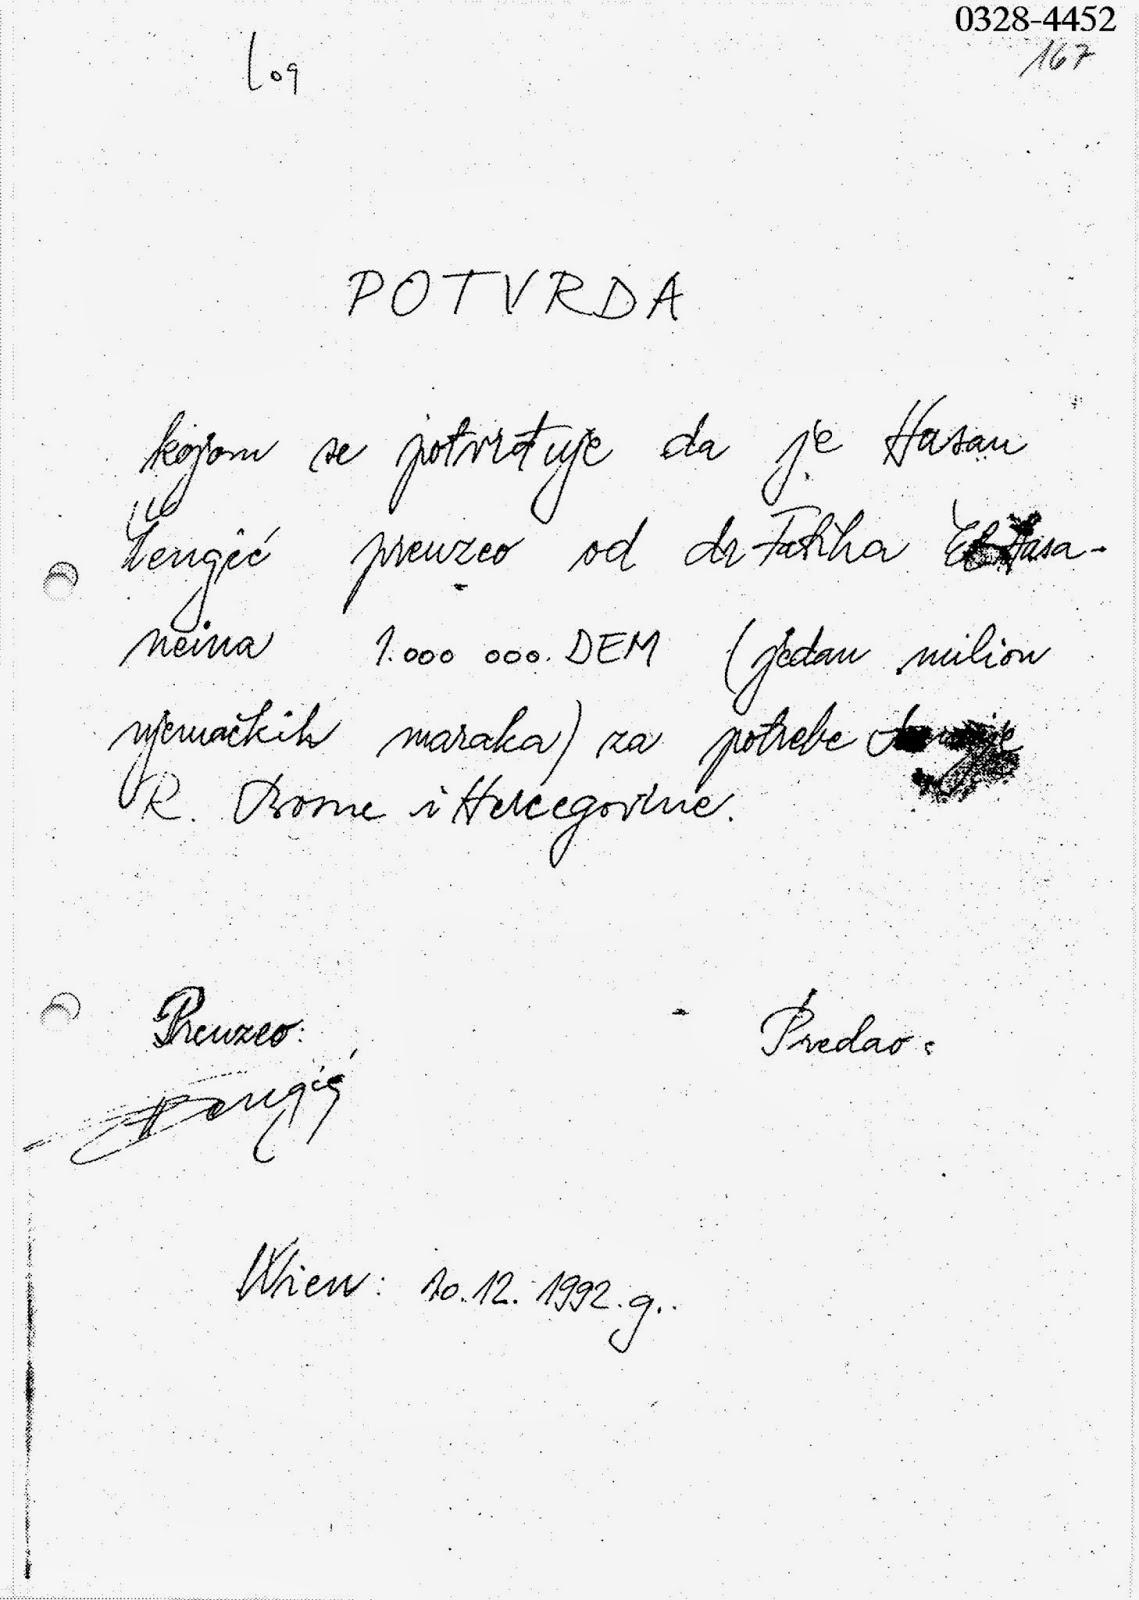 0328-4452
167
POTVRDA
kojom se potvrđuje da je Hasan
Čengić preuzeo od dr Fatiha
neina 1.000 000. DEM (jedan milion
njemačkih maraka) za potrebe
R. Bosne i Hercegovine.
Preuzeo: Predao:
Čengić
Wien: 20.12.1992.g..